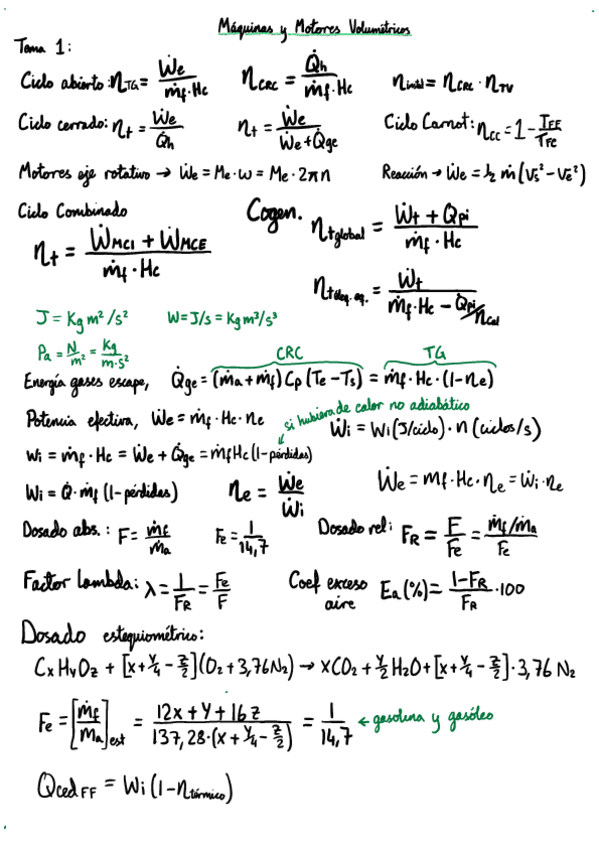 Máquinas y Motores Volumétricos
Tema 1:
Ciclo abierto: η_TG = Ẇe / (ṁf·Hc)   η_CRC = Q̇h / (ṁf·Hc)   η_instal = η_CRC · η_TV
Ciclo cerrado: ηt = Ẇe / Q̇h   ηt = Ẇe / (Ẇe + Q̇ge)   Ciclo Carnot: ηcc = 1 - T_FF / T_FC
Motores eje rotativo → Ẇe = Me·ω = Me·2πn   Reacción → Ẇe = ½ ṁ (Vs² - Ve²)
Ciclo Combinado   Cogen.   ηt global = (Ẇt + Q̇pi) / (ṁf · Hc)
ηt = (Ẇ_MCI + Ẇ_MCE) / (ṁf · Hc)
ηt eq. = Ẇt / (ṁf·Hc - Q̇pi/ηcal)
J = Kg m²/s²   W = J/s = Kg m³/s³
Pa = N/m² = Kg/(m·s²)
CRC   TG
Energía gases escape, Q̇ge = (ṁa + ṁf) Cp (Te - Ts) = ṁf · Hc · (1 - ηe)
Potencia efectiva, Ẇe = ṁf · Hc · ηe   si hubiera de calor no adiabático
Ẇi = Wi (J/ciclo) · n (ciclos/s)
Wi = ṁf · Hc = Ẇe + Q̇ge = ṁf Hc (1 - pérdidas)
Wi = Q̇ · ṁf (1 - pérdidas)   ηe = Ẇe / Ẇi   Ẇe = mf · Hc · ηe = Ẇi · ηe
Dosado abs.: F = ṁf / ṁa   Fe = 1 / 14,7   Dosado rel: F_R = F / Fe = (ṁf/ṁa) / Fe
Factor lambda: λ = 1 / F_R = Fe / F   Coef exceso aire Ea (%) = (1 - F_R) / F_R · 100
Dosado estequiométrico:
CxHyOz + [x + y/4 - z/2] (O2 + 3,76 N2) → xCO2 + y/2 H2O + [x + y/4 - z/2] · 3,76 N2
Fe = [ṁf / ṁa]est = (12x + y + 16z) / (137,28 · (x + y/4 - z/2)) = 1 / 14,7 ← gasolina y gasóleo
Qced FF = Wi (1 - η térmico)